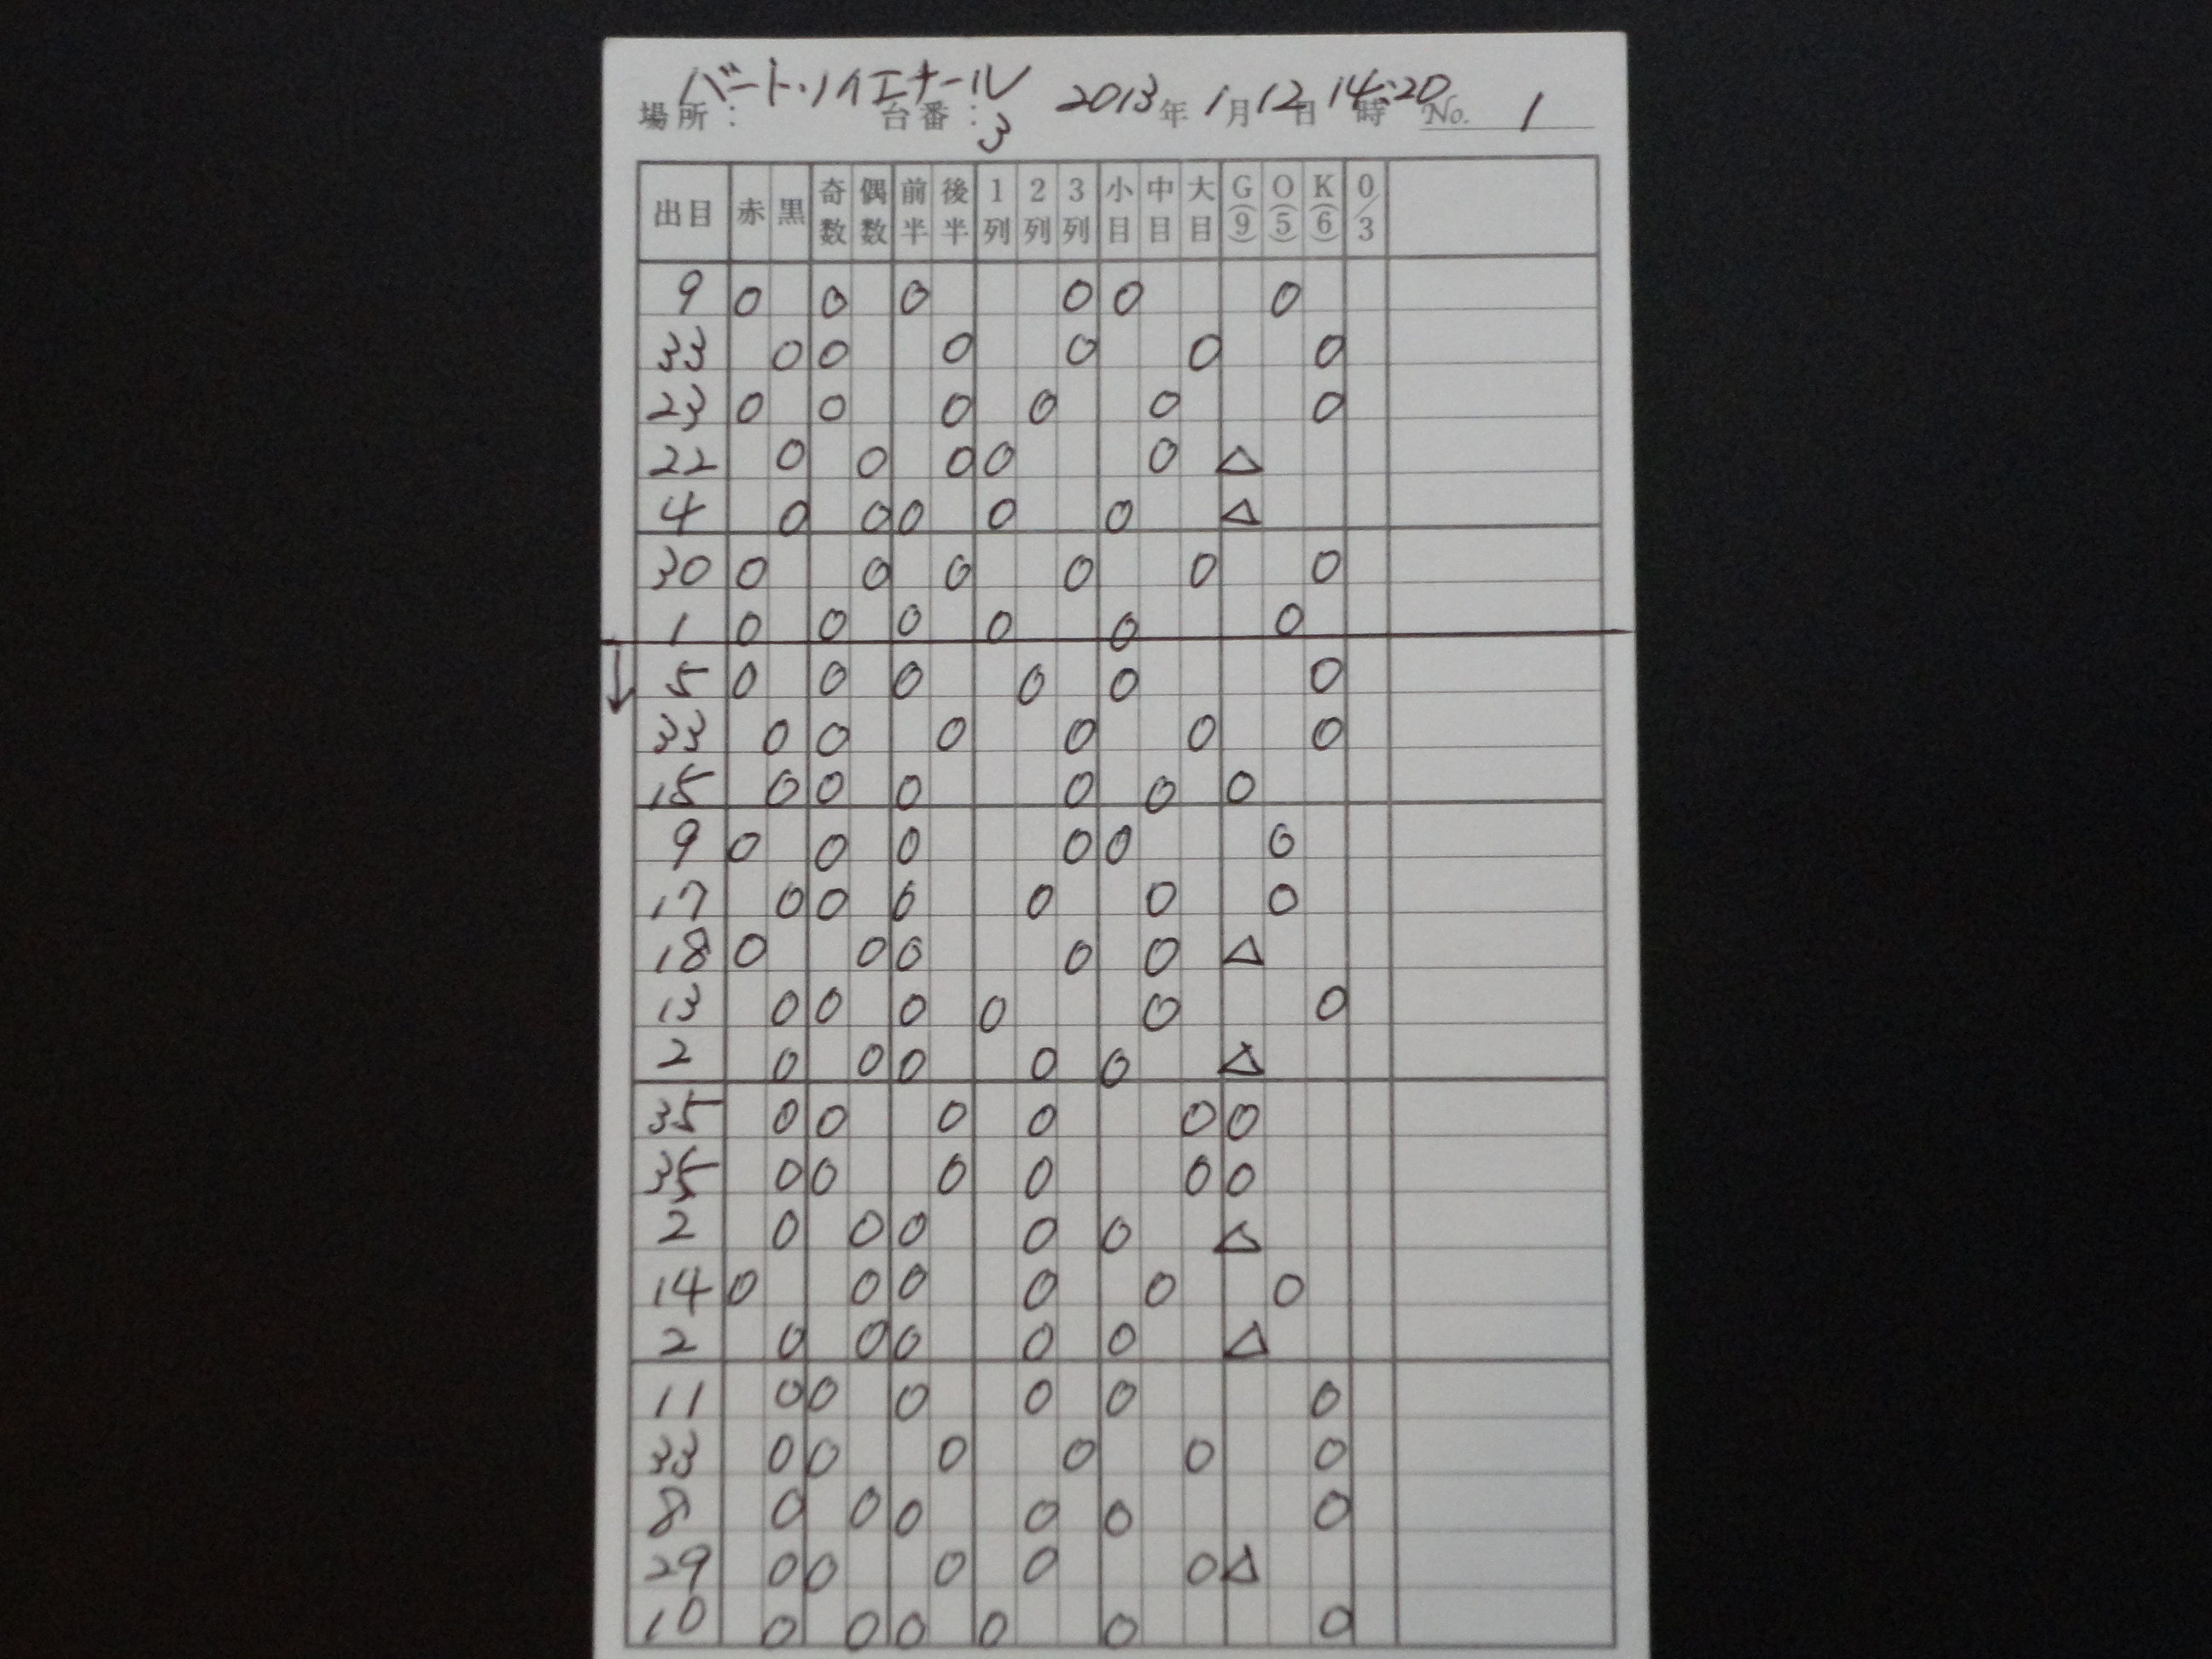 バート・ノイエナール
場所: 台番: 3 2013年 1月12日 14:20時 No. 1
出目 赤 黒 奇数 偶数 前半 後半 1列 2列 3列 小目 中目 大目 G(9) O(5) K(6) 0/3
9 O O O O O O
33 O O O O O O
23 O O O O O O
22 O O O O O △
4 O O O O O △
30 O O O O O O
1 O O O O O O
↓ 5 O O O O O O
33 O O O O O O
15 O O O O O O
9 O O O O O O
17 O O O O O O
18 O O O O O △
13 O O O O O O
2 O O O O O △
35 O O O O O O
35 O O O O O O
2 O O O O O △
14 O O O O O O
2 O O O O O △
11 O O O O O O
33 O O O O O O
8 O O O O O O
29 O O O O O △
10 O O O O O O